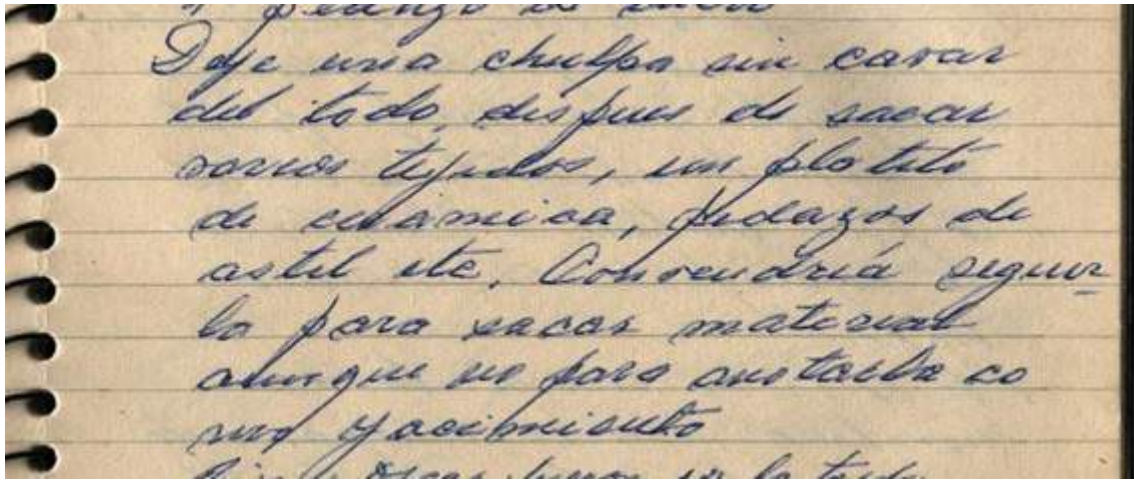 pedazo de
Deje una chullpa sin cavar
del todo, despues de sacar
varios tejidos, un platito
de ceramica, pedazos de
astil etc. Convendría seguir
la para sacar material
aunque no para anotarla co
mo yacimiento
la tarde